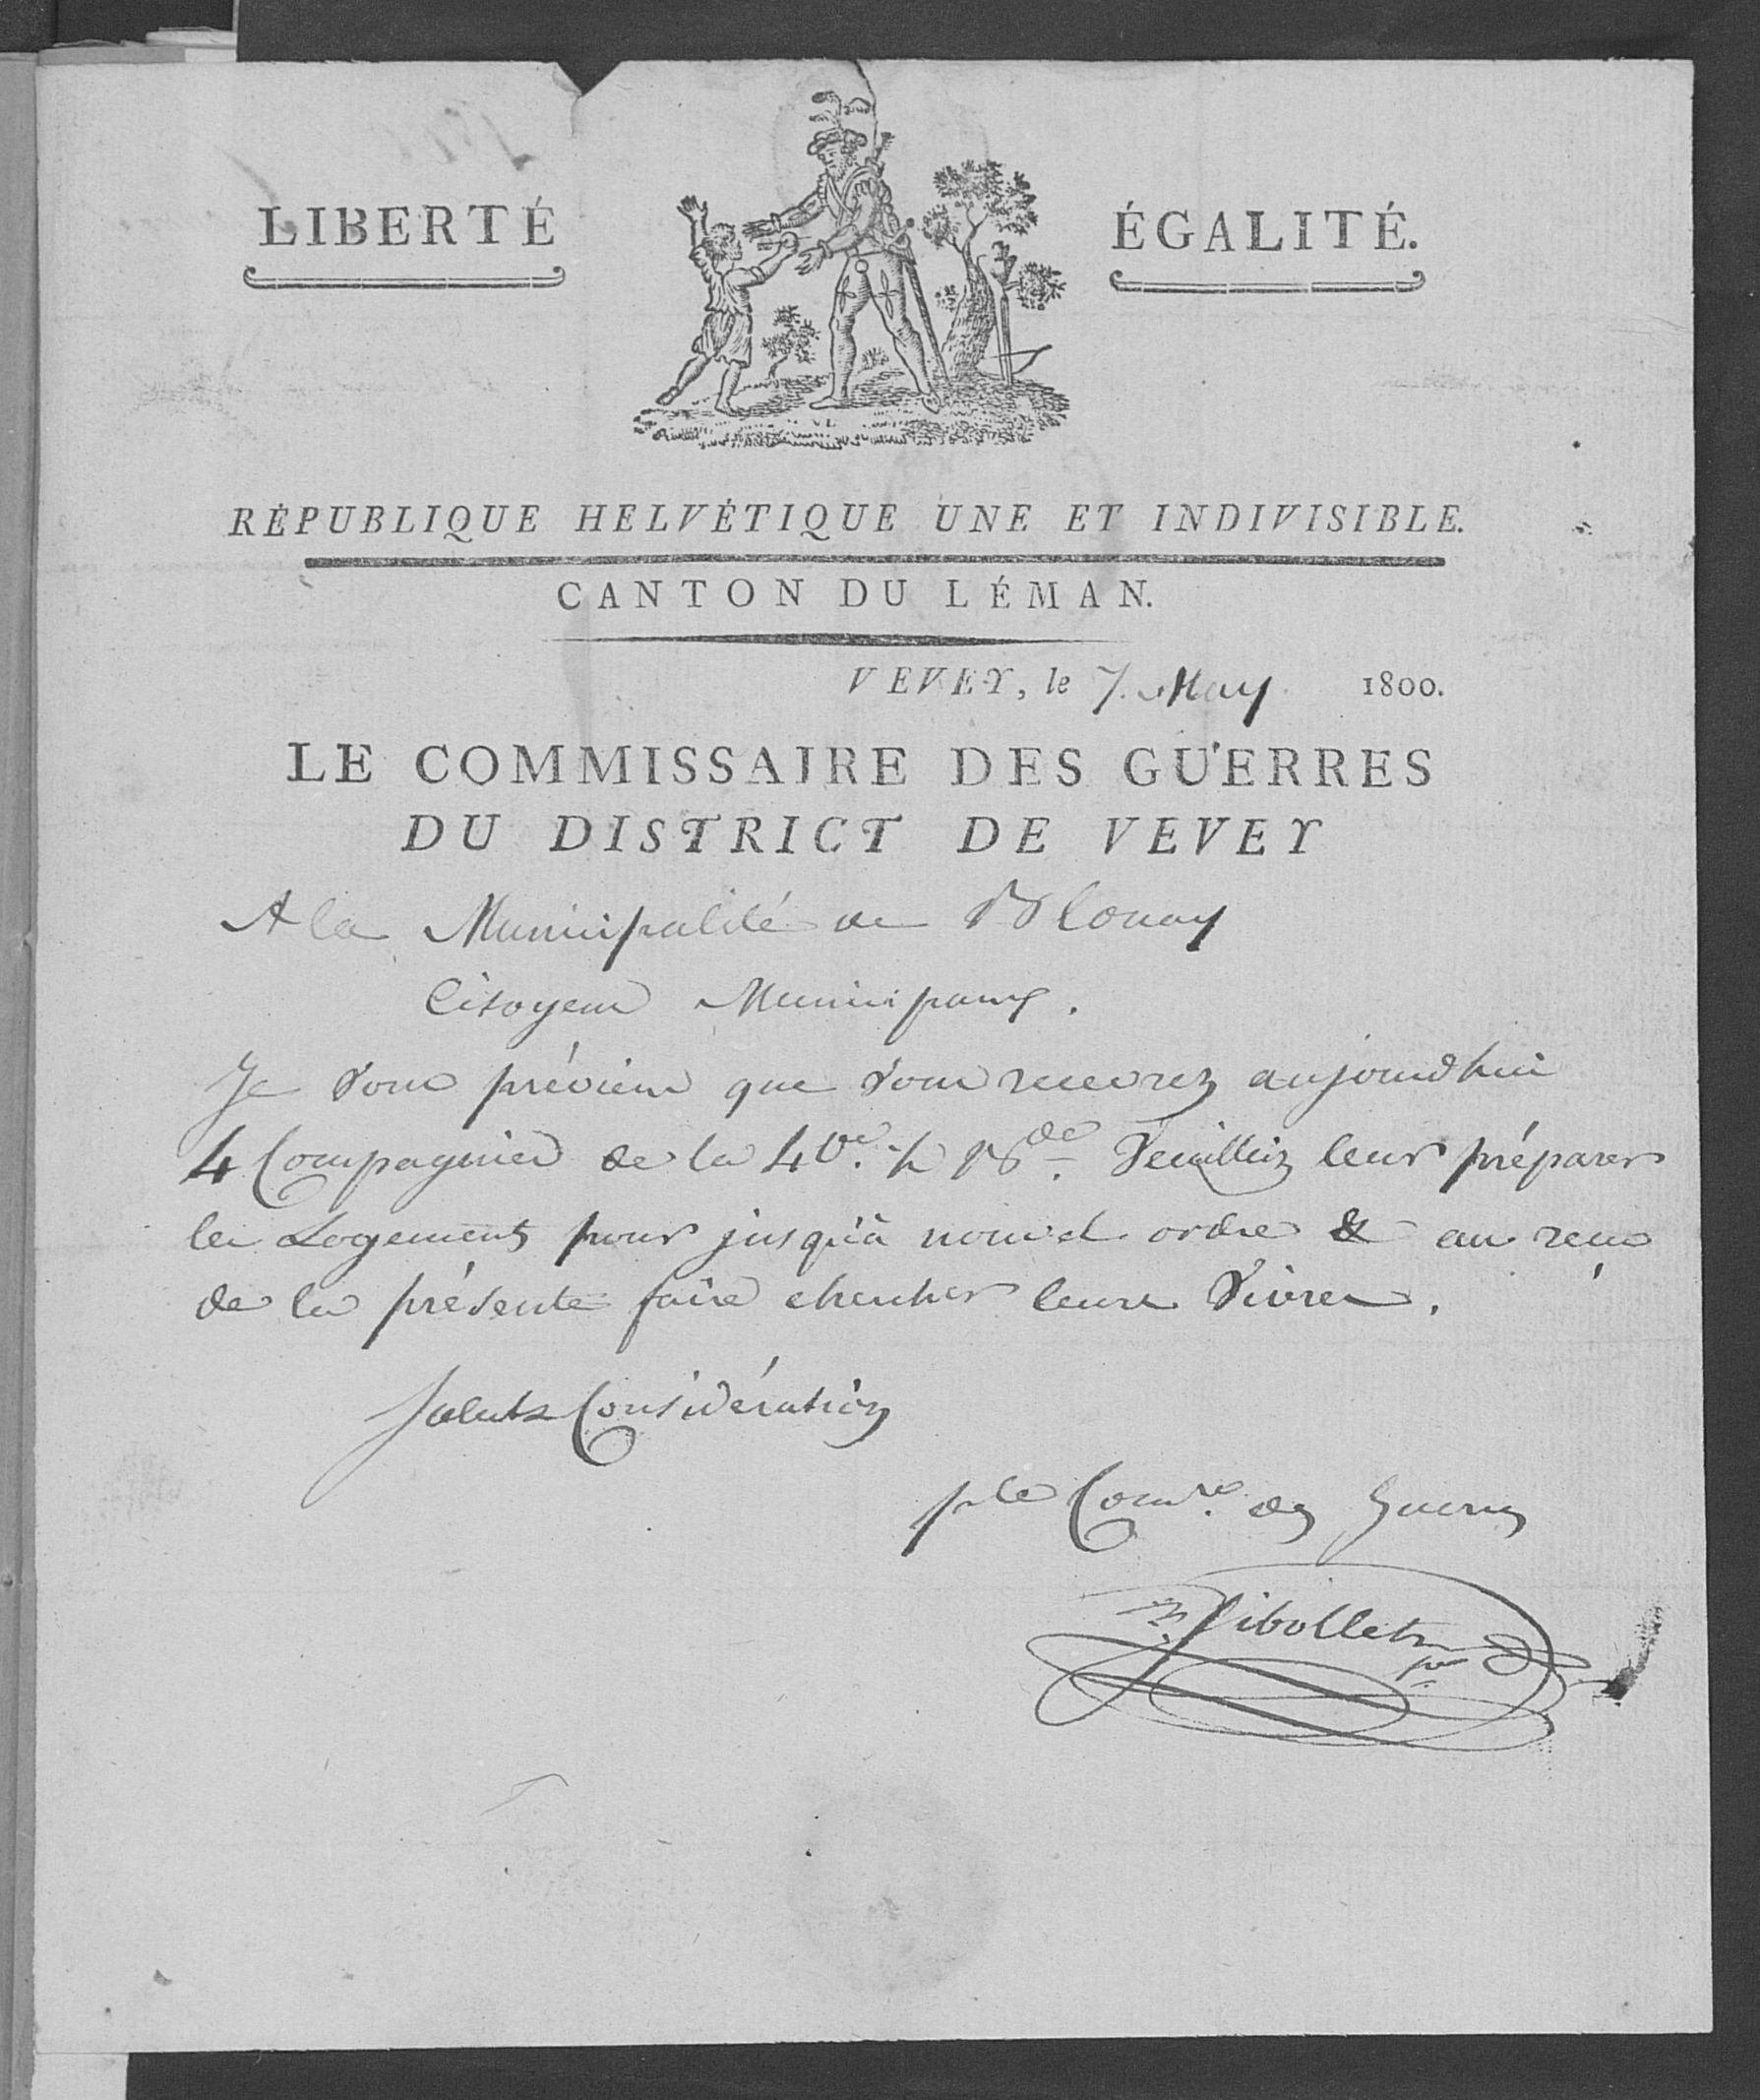 LIBERTÉ ÉGALITÉ.
RÉPUBLIQUE HELVÉTIQUE UNE ET INDIVISIBLE.
CANTON DU LÉMAN.
VEVEY, le 7. May 1800.
LE COMMISSAIRE DES GUERRES
DU DISTRICT DE VEVEY
A la Municipalité de Blonay
Citoyens Municipaux.
Je vous préviens que vous recevrez aujourdhui
4 Compagnies de la 40.e ½ B.de Veuilliez leur préparer
les Logements pour jusqu'à nouvel ordre & au recu
de la présente faire chercher leurs vivres.
Salut & Considération
p le Com.re des Guerres